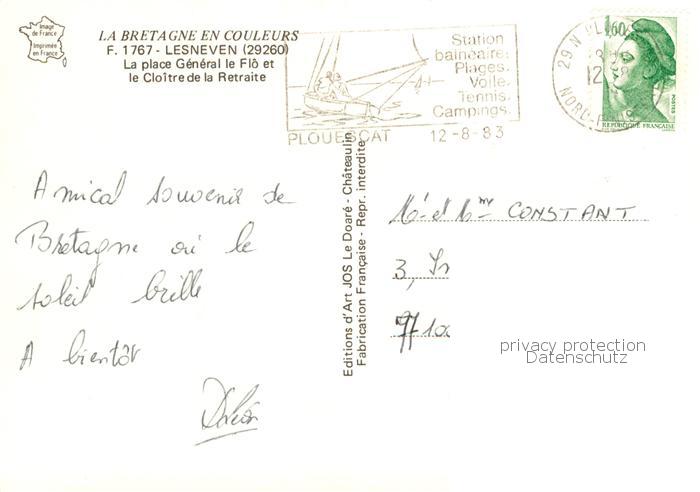 Image
de France
Imprimée
en France
LA BRETAGNE EN COULEURS
F. 1767 - LESNEVEN (29260)
La place Général le Flô et
le Cloître de la Retraite
Station
balnéaire.
Plages.
Voile.
Tennis.
Campings.
PLOUESCAT 12-8-83
29 N PL
12
NORD-FIN
1,60
POSTES
REPUBLIQUE FRANÇAISE
Amical souvenir de
Bretagne où le
soleil brille
A bientôt
Editions d'Art JOS Le Doaré - Châteaulin
Fabrication Française - Repr. interdite
Mr et Mme CONSTANT
3,
privacy protection
Datenschutz